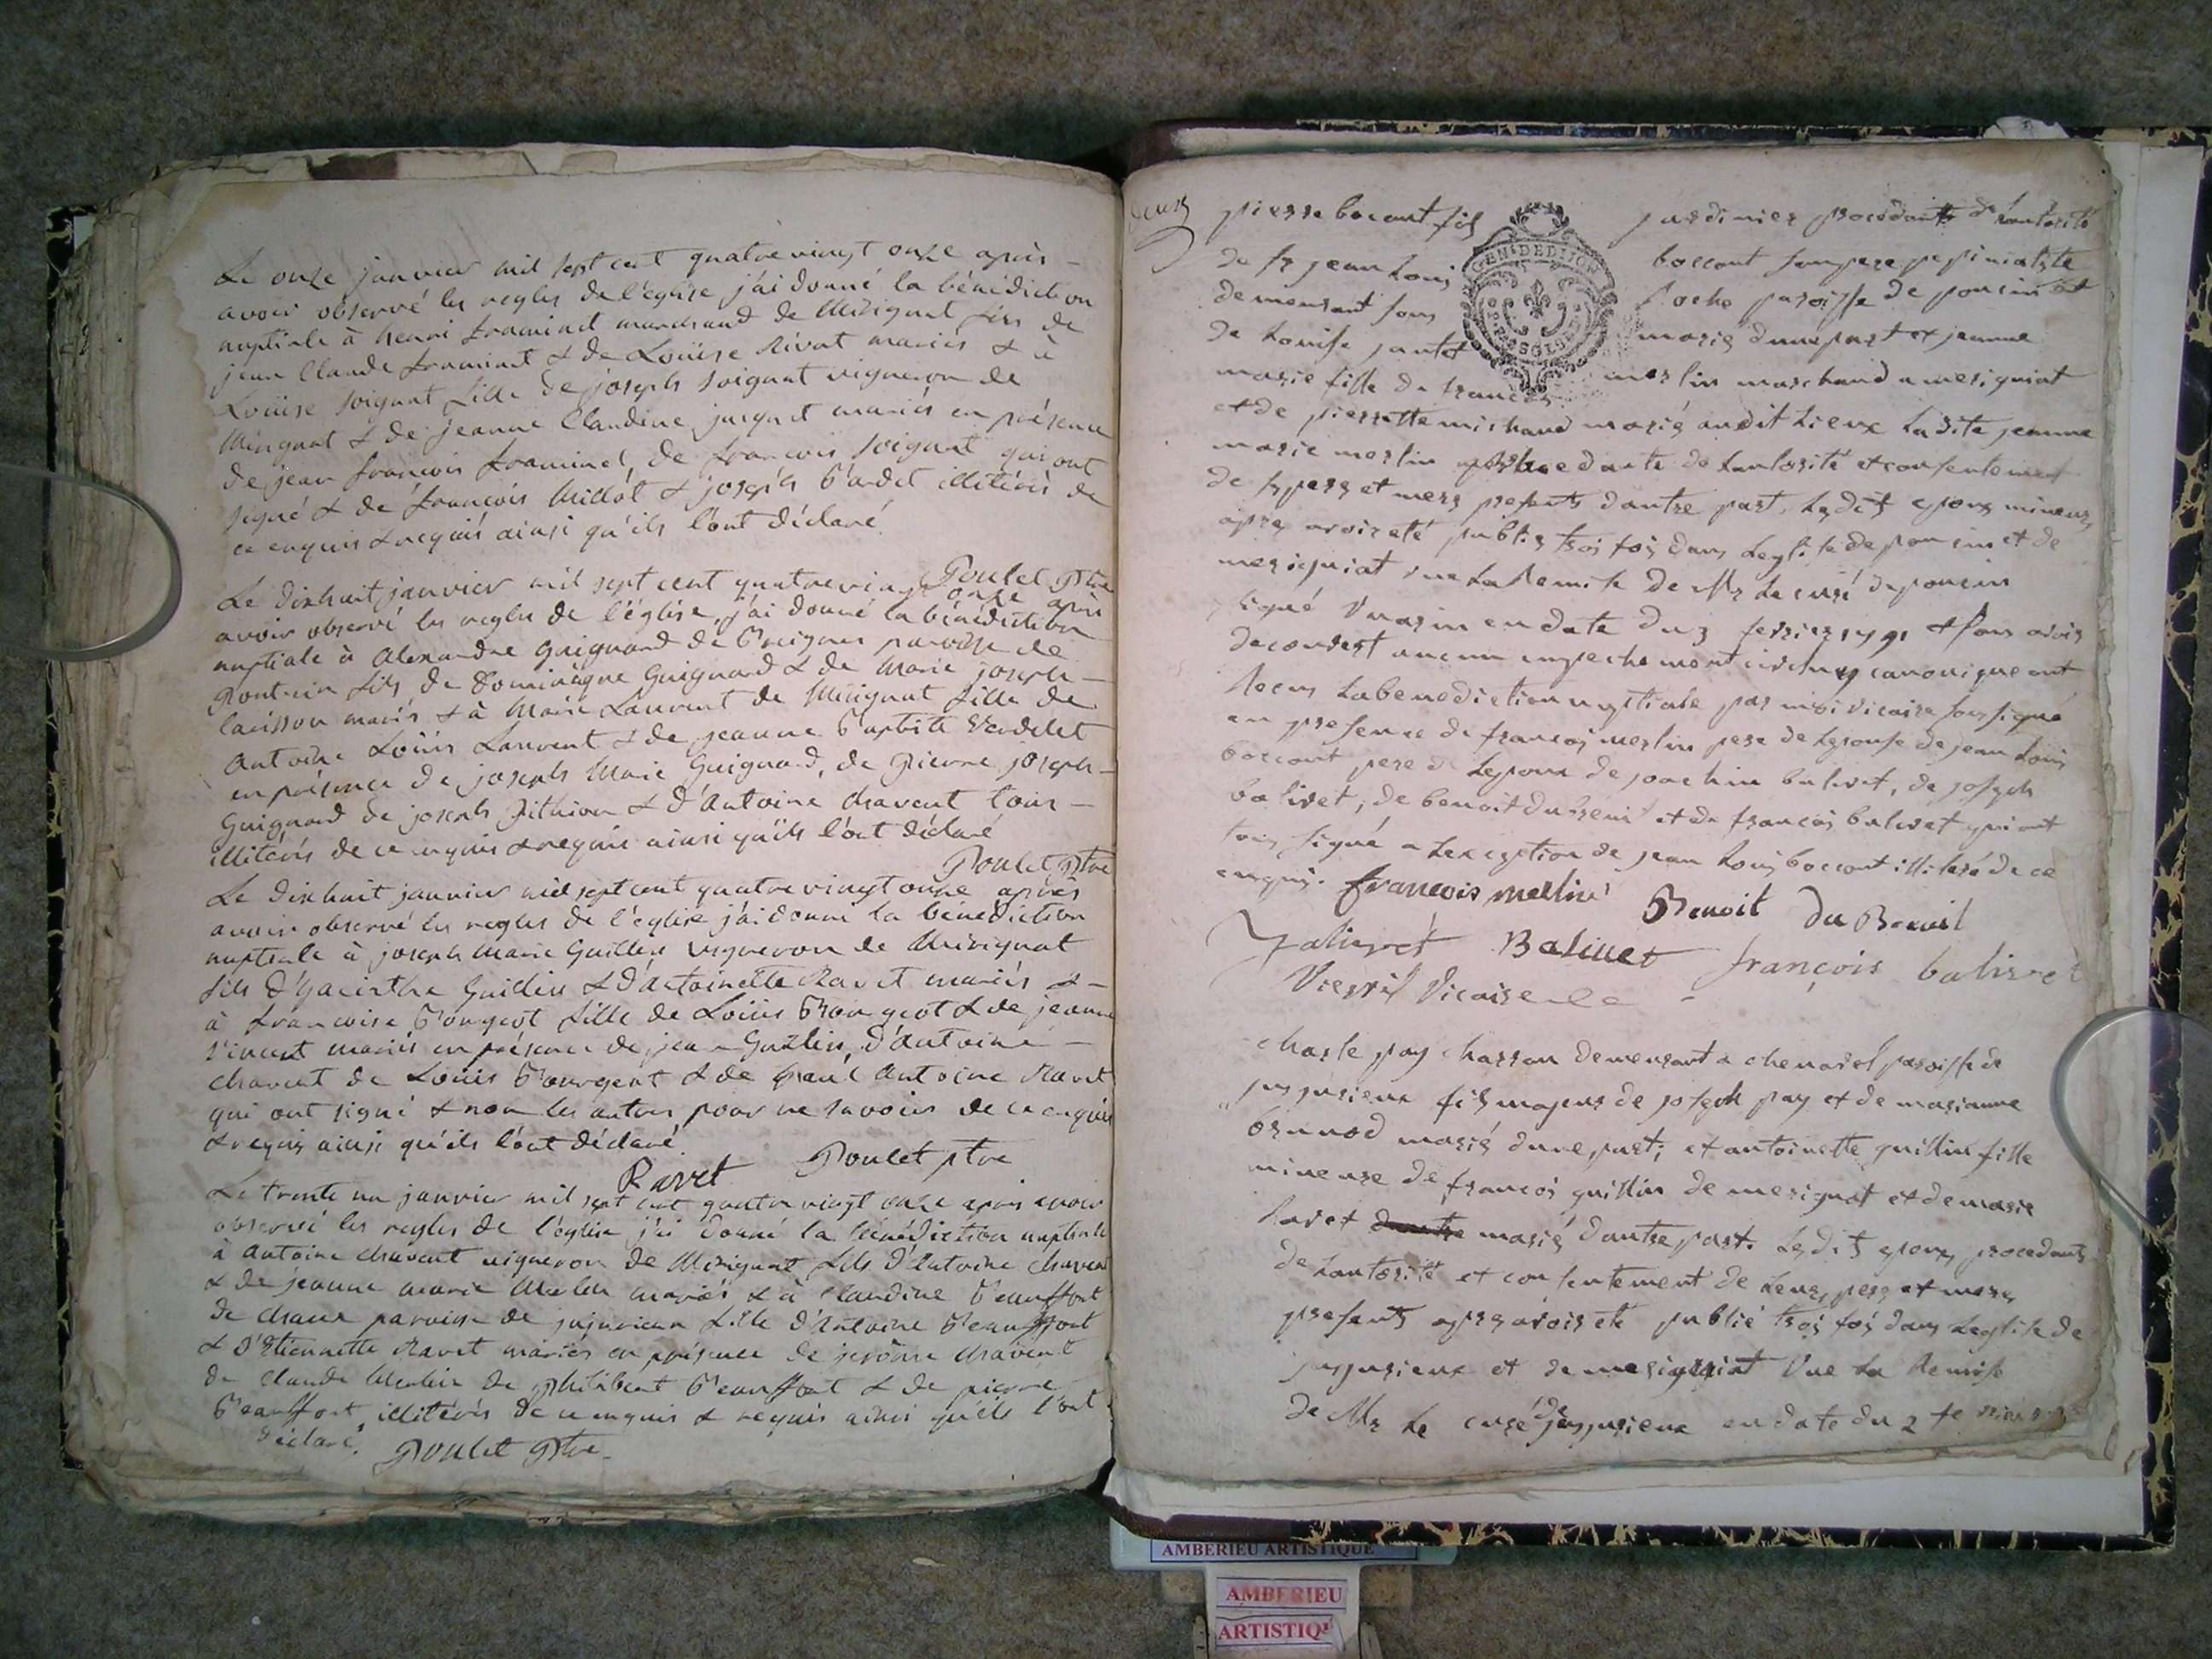 Le onze janvier mil sept cent quatre vingt onze après
avoir observé les regles de l'eglise j'ai donné la bénédiction
nuptiale à henri framinet marchand de Mérignat fils de
jean Claude framinet & de Loüise Rivat mariés & à
Loüise soignat fille de joseph soignat vigneron de
Mérignat & de jeanne Claudine juignet mariés en présence
de jean françois framinet, de francois soignat qui ont
signé & de françois Millot & joseph Bardet illitérés de
ce enquis & requis ainsi qu'ils l'ont déclaré
Poulet Ptre
Le dixhuit janvier mil sept cent quatre vingt onze après
avoir observé les regles de l'église, j'ai donné la bénédiction
nuptiale à Alexandre Guignard de Breignes paroisse de
Pontcin fils de Dominique Guignard & de Marie joseph
mariés & à Marie Laurent de Mérignat fille de
Antoine Loüis Laurent & de jeanne Baptiste Verdelet
en présence de joseph Marie Guignard, de Pierre joseph
Guignard de joseph & d'Antoine Chavent tous
illitérés de ce enquis & requis ainsi qu'ils l'ont déclaré
Poulet Ptre
Le dixhuit janvier mil sept cent quatre vingt onze après
avoir observé les regles de l'église j'ai donné la bénédiction
nuptiale à joseph Marie Guillin vigneron de Mérignat
fils d'hyacinthe Guillin & d'Antoinette Ravet mariés &
à françoise Bourgeot fille de Loüis Bourgeot & de jeanne
Vincent mariés en présence de jean Guillin, d'Antoine
Chavent de Loüis Bourgeot & de Antoine Ravet
qui ont signé & non les autres pour ne savoir de ce enquis
& requis ainsi qu'ils l'ont déclaré.
Ravet Poulet ptre
Le trente un janvier mil sept cent quatre vingt onze après avoir
observé les regles de l'église j'ai donné la bénédiction nuptiale
à Antoine Chavent vigneron de Mérignat fils d'Antoine Chavent
& de jeanne marie Merlin mariés & à Claudine Beauffort
de Chaux paroisse de jujurieux fille d'Antoine Beauffort
& d'Etiennette Ravet mariés en présence de jerôme Chavent
de Claude Merlin de Philibert Beauffort & de pierre
Beauffort, illitérés de ce enquis & requis ainsi qu'ils l'ont
déclaré. Poulet Ptre
pierre bocont fils jardinier procédant de lautorité
de sr jean Louis boccont son pere pepinieriste
demeurant sous Roche paroisse de poncin et
de Louise jantet mariés dune part et jeanne
marie fille de francois merlin marchand a merigniat
et de pierrette michaud mariés audit Lieux Ladite jeanne
marie merlin procedante de Lautorité et consentement
de ses pere et mere presents dautre part, Lesdits epoux mineurs
apres avoir eté publiés trois fois dans Leglise de poncin et de
merigniat vue La Remise de Mr Le curé de poncin
signé en date du 3 fevrier 1791 et sans avoir
decouvert aucun empechement civil ny canonique ont
Recus La benediction nuptiale par moi vicaire soussigné
en presence de francois merlin pere de Lepouse de jean Louis
boccont pere de Lepoux de joachin balivet, de joseph
balivet, de benoit dubreuil et de francois balivet qui ont
tous signé a Lexception de jean Louis boccont illiteré de ce
enquis. francois merlin Benoit du Breuil
Balivet Balivet françois balivet
Vicaire
charle pay chassan demeurant a chenavel paroisse de
jujurieux fils majeur de joseph pay et de marianne
brunod mariés dune part; et antoinette guillin fille
mineure de francois guillin de merignat et de marie
Ravet mariés dautre part. Lesdits epoux procedants
de Lautorité et consentement de Leurs peres et meres
presents apres avoir eté publié trois fois dans Leglise de
jujurieux et de merigniat Vue La Remise
de Mr Le curé de jujurieux en date du 2 fevrier
AMBERIEU ARTISTIQUE
AMBERIEU
ARTISTIQ